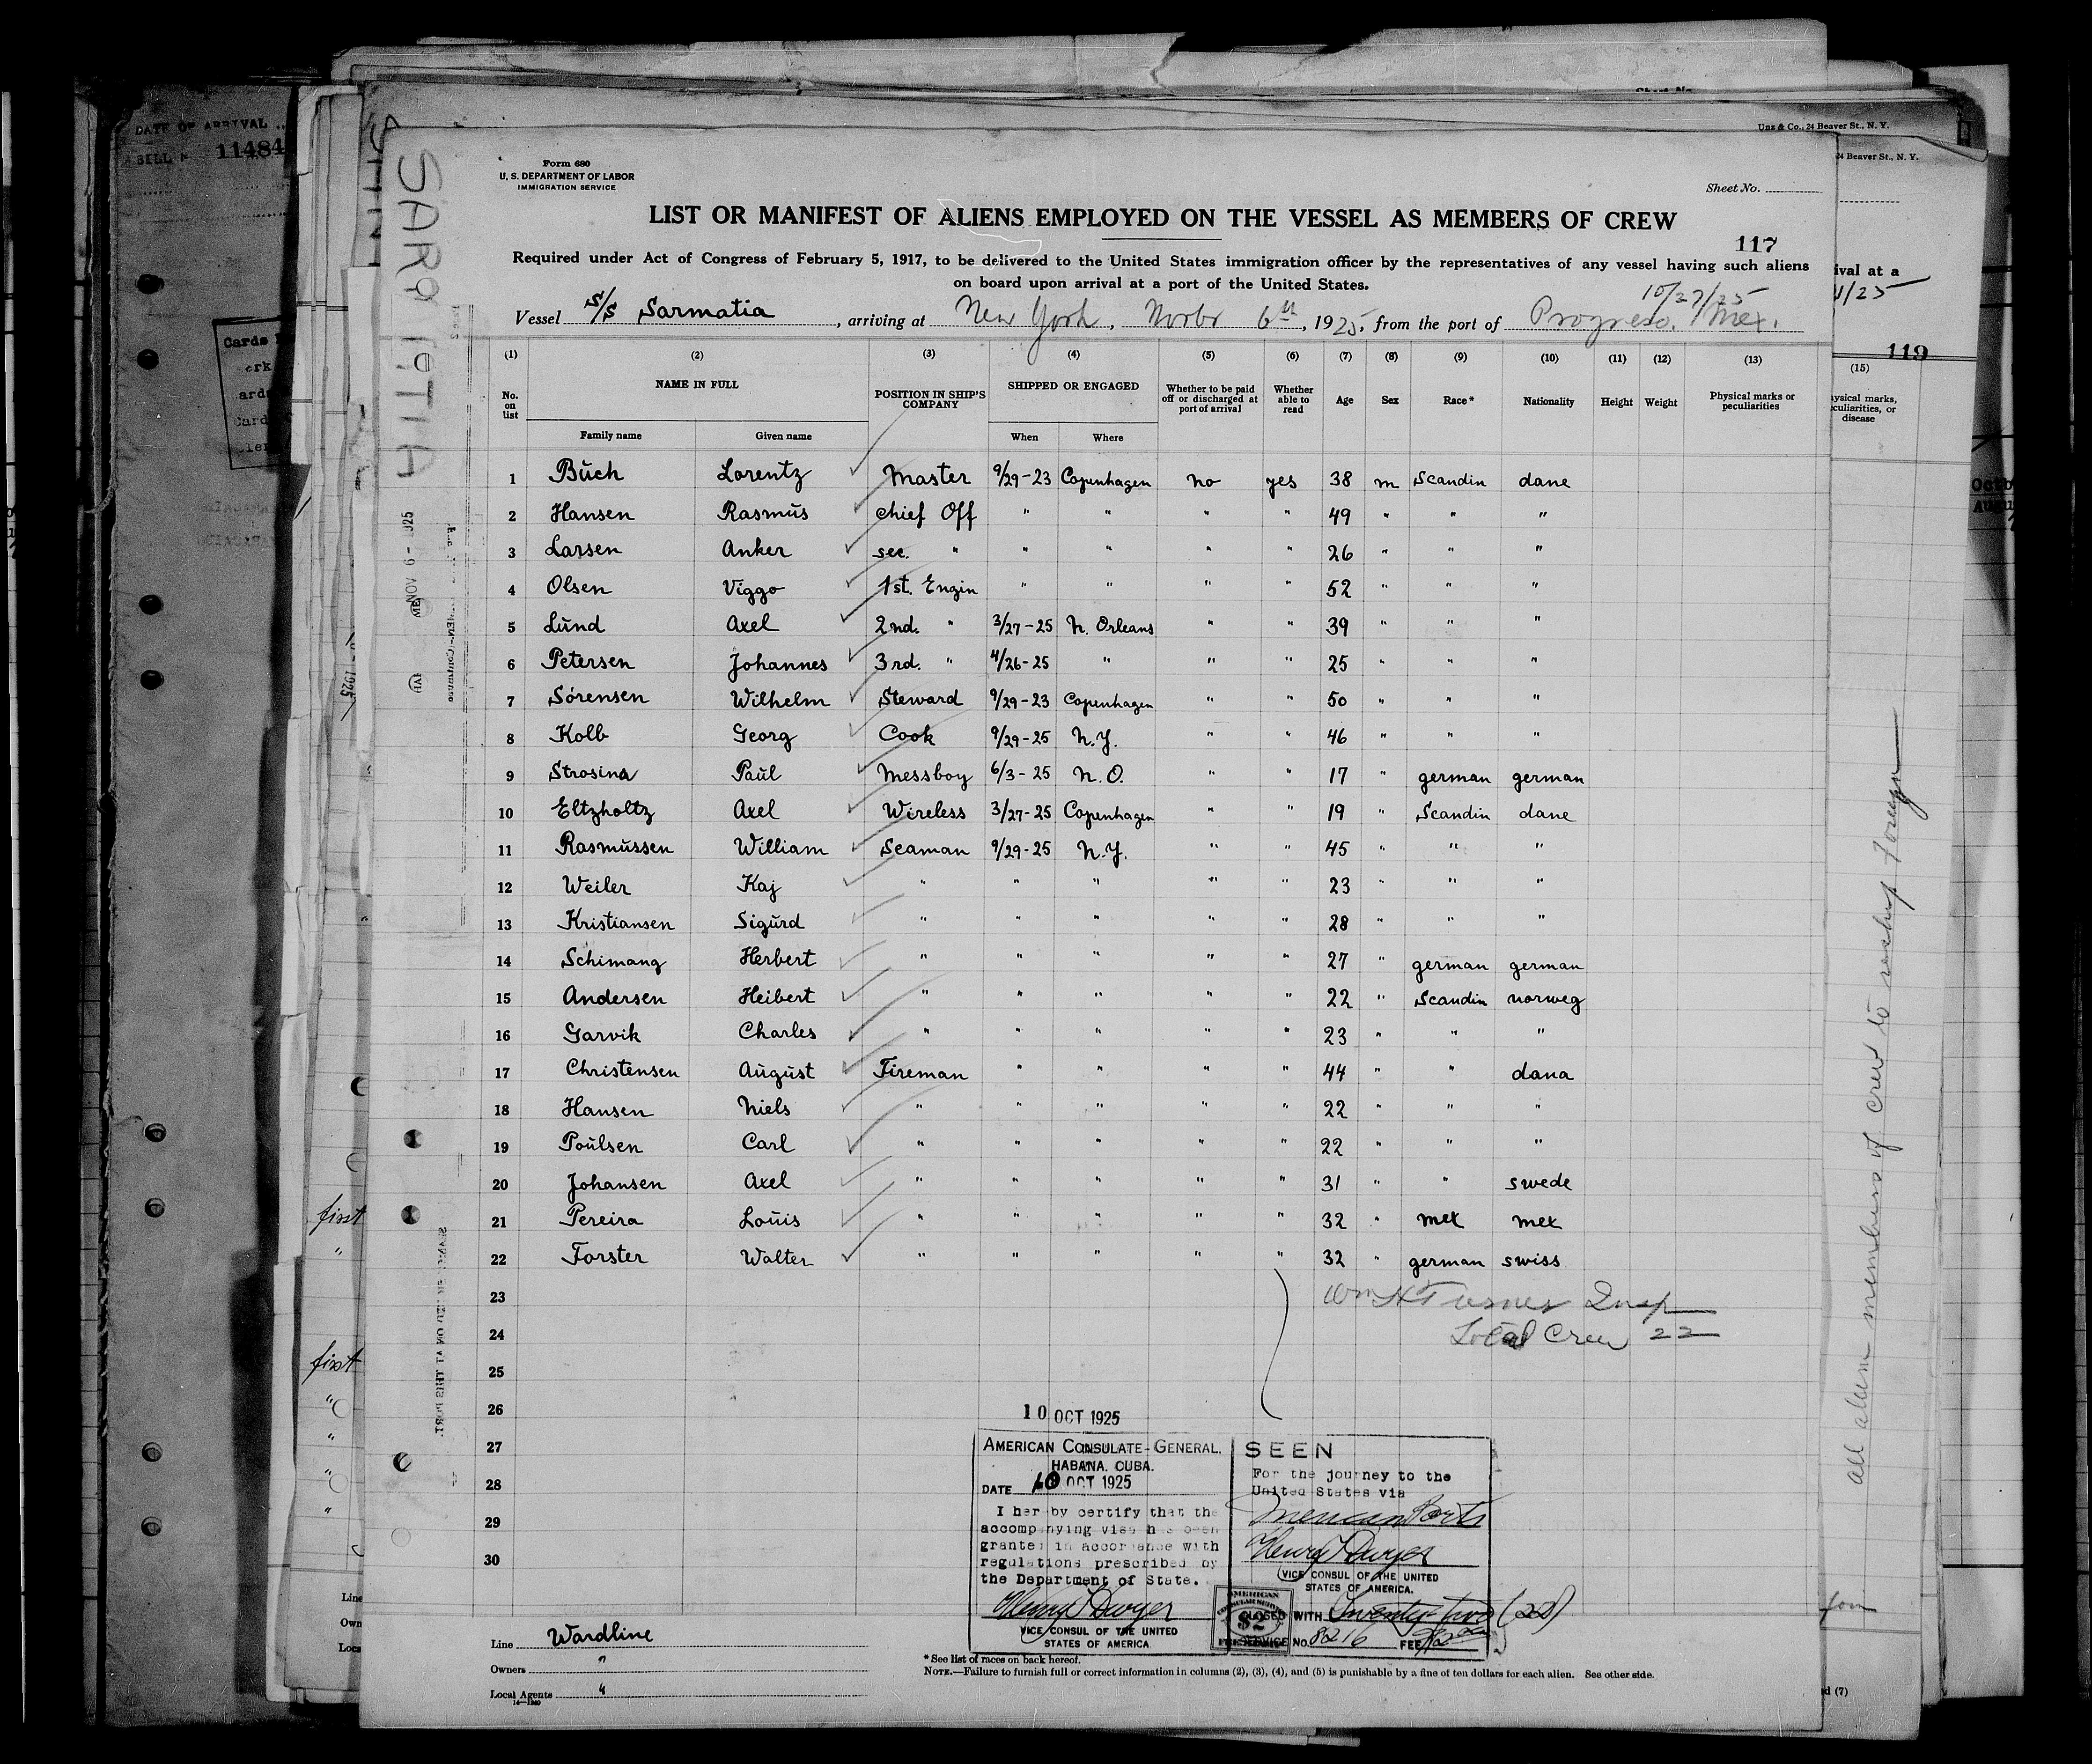 DATE OF ARRIVAL
BILL 11484
SARMATIA
Form 680
U. S. DEPARTMENT OF LABOR
IMMIGRATION SERVICE
Unz & Co., 24 Beaver St., N. Y.
24 Beaver St., N. Y.
Sheet No.
LIST OR MANIFEST OF ALIENS EMPLOYED ON THE VESSEL AS MEMBERS OF CREW
117
Required under Act of Congress of February 5, 1917, to be delivered to the United States immigration officer by the representatives of any vessel having such aliens
on board upon arrival at a port of the United States.
10/27/25
Vessel S/S Sarmatia, arriving at New York, Novbr 6th, 1925, from the port of Progreso, Mex.
119
(1) (2) (3) (4) (5) (6) (7) (8) (9) (10) (11) (12) (13)
No. on list NAME IN FULL POSITION IN SHIP'S COMPANY SHIPPED OR ENGAGED Whether to be paid off or discharged at port of arrival Whether able to read Age Sex Race* Nationality Height Weight Physical marks or peculiarities
Family name Given name When Where
1 Büch Lorentz Master 9/29-23 Copenhagen no yes 38 m Scandin dane
2 Hansen Rasmüs chief Off " " " " 49 " " "
3 Larsen Anker sec. " " " " " 26 " " "
4 Olsen Viggo 1st. Engin " " " " 52 " " "
5 Lünd Axel 2nd. " 3/27-25 N. Orleans " " 39 " " "
6 Petersen Johannes 3rd. " 4/26-25 " " " 25 " " "
7 Sórensen Wilhelm Steward 9/29-23 Copenhagen " " 50 " " "
8 Kolb Georg Cook 9/29-25 N.Y. " " 46 " " "
9 Strosina Paül Messboy 6/3-25 N.O. " " 17 " german german
10 Eltzholtz Axel Wireless 3/27-25 Copenhagen " " 19 " Scandin dane
11 Rasmüssen William Seaman 9/29-25 N.Y. " " 45 " " "
12 Weiler Kaj " " " " " 23 " " "
13 Kristiansen Sigürd " " " " " 28 " " "
14 Schimang Herbert " " " " " 27 " german german
15 Andersen Heibert " " " " " 22 " Scandin norweg
16 Garvik Charles " " " " " 23 " " "
17 Christensen Aügüst Fireman " " " " 44 " " dana
18 Hansen Niels " " " " " 22 " " "
19 Poülsen Carl " " " " " 22 " " "
20 Johansen Axel " " " " " 31 " " swede
21 Pereira Loüis " " " " " 32 " mex mex
22 Forster Walter " " " " " 32 " german swiss
23 Wm H Turner Insp
24 Total Crew 22
25
26
27
28
29
30
NOV 6 - 1925
all alien members of crew to reship foreign
10 OCT 1925
AMERICAN CONSULATE-GENERAL.
HABANA. CUBA.
DATE 10 OCT 1925
I hereby certify that the
accompanying visa has been
granted in accordance with
regulations prescribed by
the Department of State.
Henry T Dwyer
VICE CONSUL OF THE UNITED
STATES OF AMERICA
SEEN
For the journey to the
United States via
Mexican Ports
Henry T Dwyer
VICE CONSUL OF THE UNITED
STATES OF AMERICA.
CLOSED WITH Twenty-two (22)
SERVICE NO. 8216 FEE $2.00
AMERICAN
$2
Line Wardline
Owners "
Local Agents "
14-1240
* See list of races on back hereof.
NOTE.—Failure to furnish full or correct information in columns (2), (3), (4), and (5) is punishable by a fine of ten dollars for each alien. See other side.